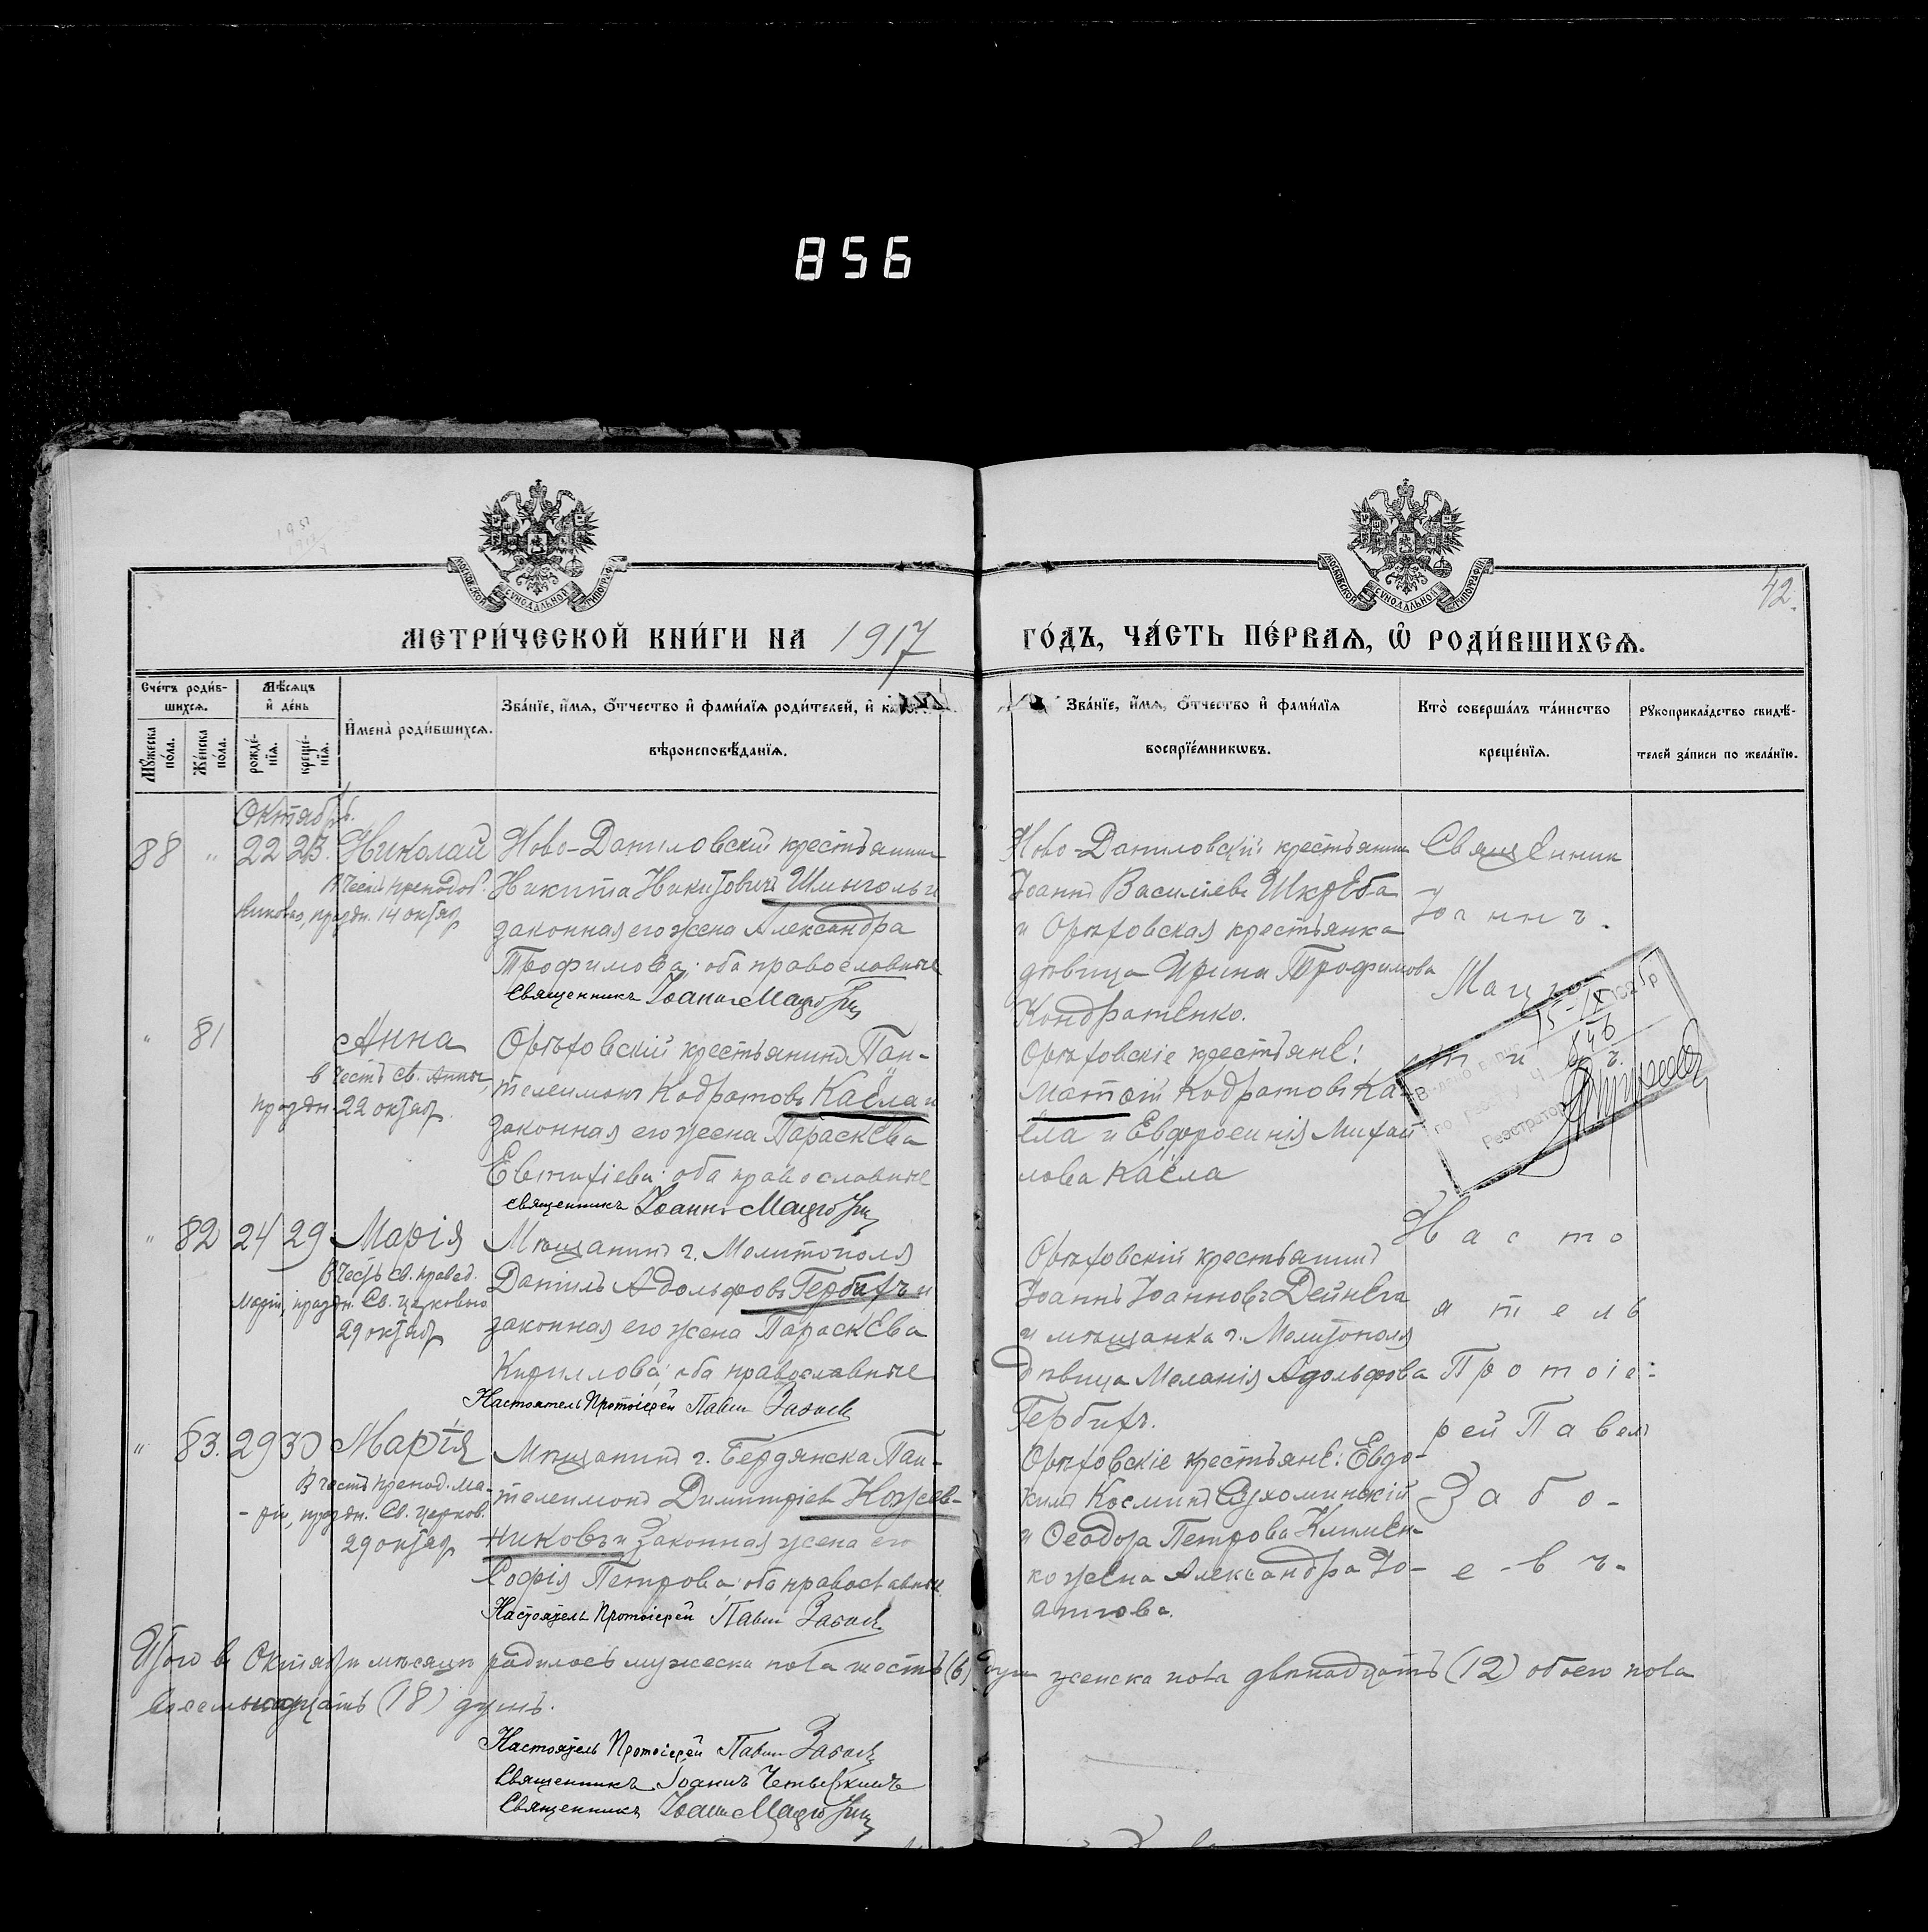 856
42.
МЕТРИ́ЧЕСКОЙ КНИ́ГИ НА 1917 ГО́ДЪ, ЧА́СТЬ ПЕ́РВАЯ, Ѡ РОДИ́ВШИХСЯ.
Сче́тъ роди́вшихся.
Мꙋ́жеска по́ла.
Же́нска по́ла.
Мѣ́сяцъ и де́нь
рожде́нїя.
креще́нїя.
Имена̀ роди́вшихся.
Зва́нїе, и́мя, о́тчество и фами́лїя роди́телей, и
вѣроисповѣ́данїя.
Зва́нїе, и́мя, о́тчество и фами́лїя
воспрїе́мникѡвъ.
Кто̀ соверша́лъ та́инство
креще́нїя.
Рꙋкоприкла́дство свидѣ́-
телей за́писи по жела́нїю.
Октябрь.
88 " 22 23. Николай
В честь преподоб.
праздн. 14 октяб
Ново-Даниловскій крестьянинъ
Никита Никитовичъ и
законная его жена Александра
Трофимова; оба православные
Священникъ Іоаннъ
Ново-Даниловскій крестьянинъ
Іоаннъ Василіевъ Шкреба
и Орѣховская крестьянка
дѣвица Ирина Трофимова
Кондратенко.
Священник
Іоаннъ.
" 81 Анна
в честь св. Анны,
праздн. 22 октяб.
Орѣховскій крестьянинъ Пан-
телеимонъ Кодратовъ Каёла и
законная его жена Параскева
Евтихіева; оба православные
Священникъ Іоаннъ
Орѣховскіе крестьяне:
Матѳей Кодратовъ Ка-
ёла и Евфросинія Михай
лова Каёла
" 82 24 29 Марія
В честь св. правед.
Маріи, праздн. Св. церковью
29 октяб
Мѣщанинъ г. Мелитополя
Даніилъ Адольфовъ Гербихъ и
законная его жена Параскева
Кириллова; оба православные
Настоятель Протоіерей Павелъ Забоев
Орѣховскій крестьянинъ
Іоаннъ Іоанновъ Дейнега
и мѣщанка г. Мелитополя
дѣвица Меланія Адольфова
Гербихъ.
Насто
ятель
Протоіе-
рей Павелъ
Забо-
евъ.
" 83. 29 30 Марія
В честь препод. Ма-
-ріи, праздн. Св. церков.
29 октяб
Мѣщанинъ г. Бердянска Пан-
телеимонъ Димитріев Кожев-
никовъ и законная жена его
Софія Петрова; оба православные
Настоятель Протоіерей Павелъ Забоев
Орѣховскіе крестьяне: Евдо-
кимъ Косминъ Сухоминскій
и Ѳеодора Петрова Климен-
ко жена Александра Іо-
аннова.
Итого в Октябрѣ мѣсяцѣ родилось мужеска пола шесть (6) душ женска пола двѣнадцать (12) обоего пола
восемьнадцать (18) душъ.
Настоятель Протоіерей Павелъ Забоев
Священникъ Іоаннъ
Священникъ Іоаннъ